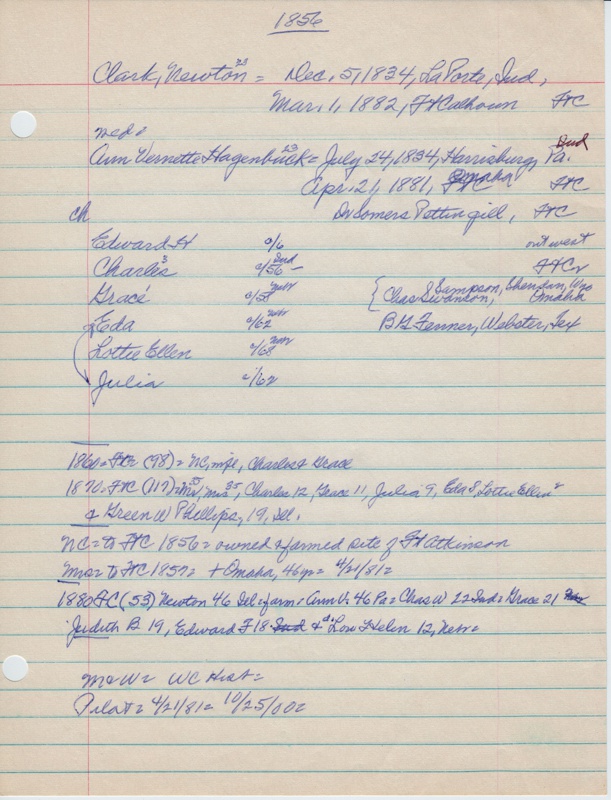 1856
Clark, Newton 23 = Dec. 5, 1834, LaPorte, Ind,
Mar. 1, 1882, Ft Calhoun FtC
med =
Ann Vernette Hagenbuck 23 = July 24, 1834, Harrisburg, Pa. Ind
Apr. 21, 1881, FtC Omaha FtC
ch Dr Somers Pettingill, FtC
Edward H a/6 out west
Charles 3 a/56 - Ind FtC
Grace a/58 { Chas S Sampson, Wyo
Swanson, Omaha
Eda a/62 B G Fanner, Webster, Tex
Lottie Ellen a/68
Julia c/62
1860 = FtC (98) = NC, wife, Charles & Grace
1870 FtC (117) = Mr, Mrs 35, Charles 12, Grace 11, Julia 9, Eda 8, Lottie Ellen 2
& Green W Phillips, 19, Del.
NC = to FtC 1856 = owned & farmed site of Ft Atkinson
Mrs = to FtC 1857 = + Omaha, 46y = 4/21/81 =
1880 FC (53) Newton 46 Del = farm = Ann V. 46 Pa = Chas W 22 Ind = Grace 21
Judith B 19, Edward F 18 Ind & d. Lou Helen 12, Nebr =
M & W = WC Hist =
Pilot = 4/21/81 = 10/25/00 =